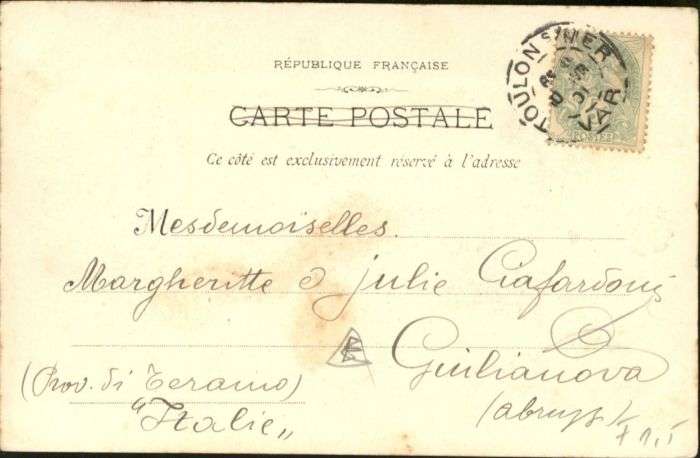 RÉPUBLIQUE FRANÇAISE
CARTE POSTALE
Ce côté est exclusivement réservé à l'adresse
TOULON S/MER
VAR
POSTES
Mesdemoiselles.
Margheritte & Julie Ciafardoni
Guilianova
(Prov. di Teramo)
(abruzz)
"Italie"